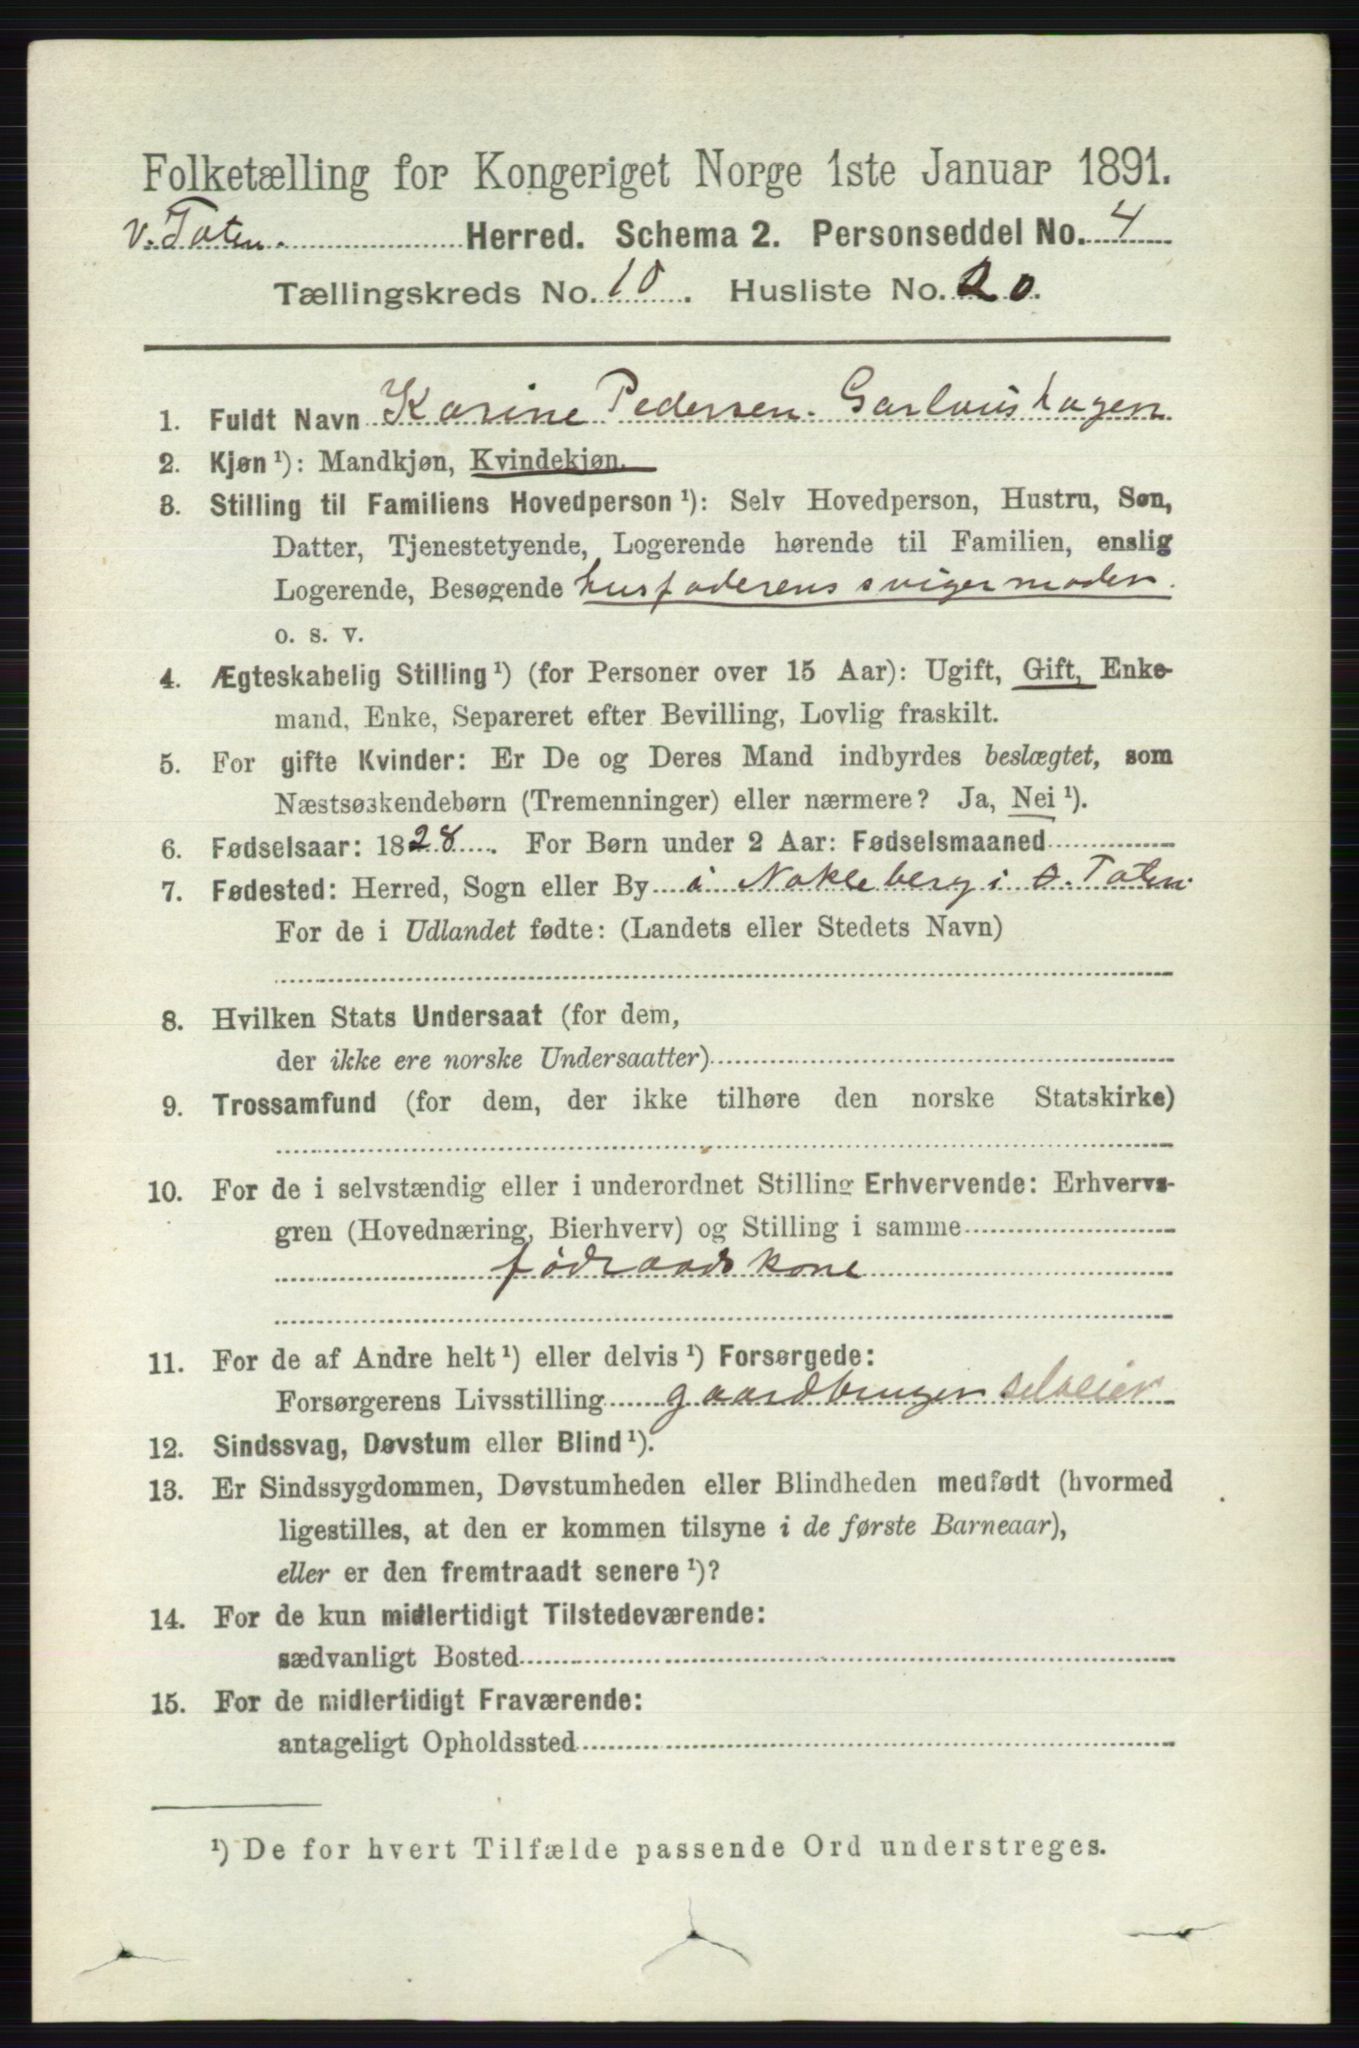 Folketælling for Kongeriget Norge 1ste Januar 1891.
V. Toten. Herred. Schema 2. Personseddel No. 4
Tællingskreds No. 10. Husliste No. 20.
1. Fuldt Navn Karine Pedersen.
2. Kjøn ¹): Mandkjøn, Kvindekjøn.
3. Stilling til Familiens Hovedperson ¹): Selv Hovedperson, Hustru, Søn,
Datter, Tjenestetyende, Logerende hørende til Familien, enslig
Logerende, Besøgende husfaderens svigermoder.
o. s. v.
4. Ægteskabelig Stilling ¹) (for Personer over 15 Aar): Ugift, Gift, Enke-
mand, Enke, Separeret efter Bevilling, Lovlig fraskilt.
5. For gifte Kvinder: Er De og Deres Mand indbyrdes beslægtet, som
Næstsøskendebørn (Tremenninger) eller nærmere? Ja, Nei ¹).
6. Fødselsaar: 1828. For Børn under 2 Aar: Fødselsmaaned
7. Fødested: Herred, Sogn eller By å Nökleberg i Ø. Toten.
For de i Udlandet fødte: (Landets eller Stedets Navn)
8. Hvilken Stats Undersaat (for dem,
der ikke ere norske Undersaatter)
9. Trossamfund (for dem, der ikke tilhøre den norske Statskirke)
10. For de i selvstændig eller i underordnet Stilling Erhvervende: Erhvervs-
gren (Hovednæring, Bierhverv) og Stilling i samme
föderaads kone
11. For de af Andre helt ¹) eller delvis ¹) Forsørgede:
Forsørgerens Livsstilling gaardbruger selveier
12. Sindssvag, Døvstum eller Blind ¹).
13. Er Sindssygdommen, Døvstumheden eller Blindheden medfødt (hvormed
ligestilles, at den er kommen tilsyne i de første Barneaar),
eller er den fremtraadt senere ¹)?
14. For de kun midlertidigt Tilstedeværende:
sædvanligt Bosted
15. For de midlertidigt Fraværende:
antageligt Opholdssted
¹) De for hvert Tilfælde passende Ord understreges.